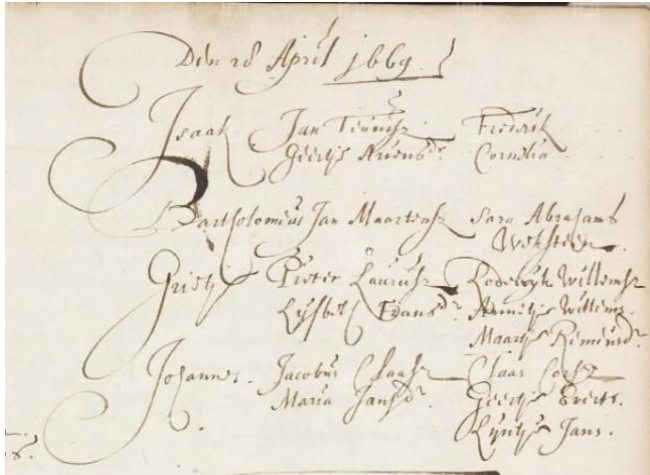 Den 28 April 1669.
Isaak Jan Teunisz Fredrik
Geertje Ariens dr Cornelia
Bartholomeus Jan Maartensz Sara Abrahams
Grietje Pieter Lourisz Lodewyk Willemsz
Lysbeth Dans dr Annetje Willems.
Maartje Remeus dr
Johannes. Jacobus Claasz Claas Corsz
Maria Jans dr. Geertje Everts.
Lyntje Jans.